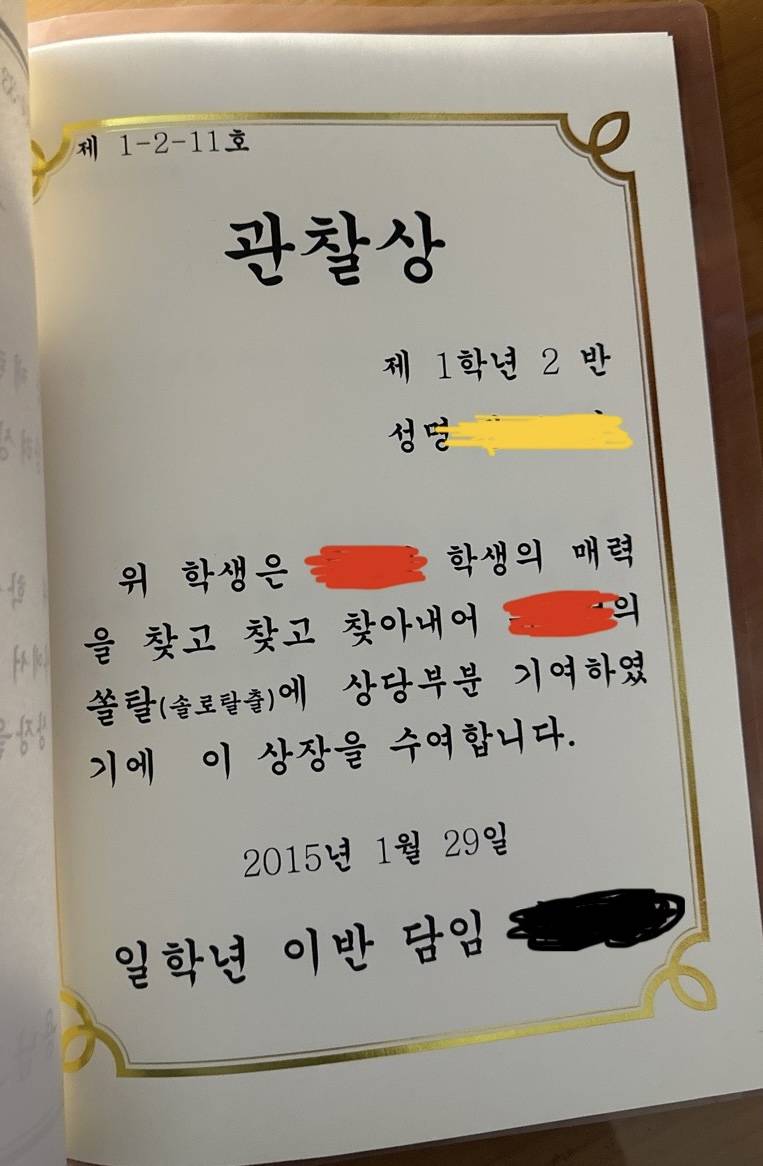 제 1-2-11호
관찰상
제 1학년 2 반
성명
위 학생은 학생의 매력
을 찾고 찾고 찾아내어 의
쏠탈(솔로탈출)에 상당부분 기여하였
기에 이 상장을 수여합니다.
2015년 1월 29일
일학년 이반 담임